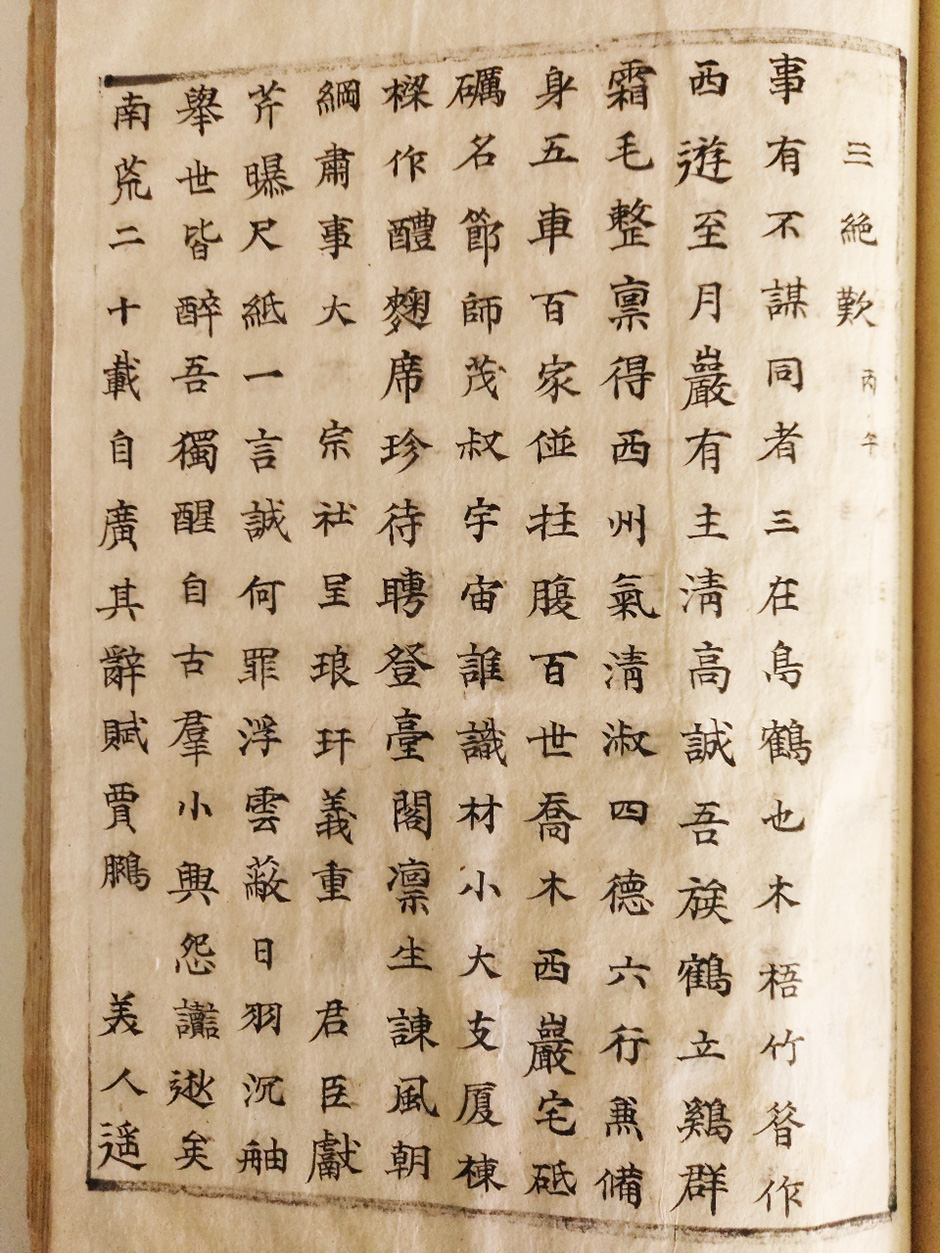 三絶歎 丙午
事有不謀同者三在鳥鶴也木梧竹咎作
西遊至月巖有主淸高誠吾族鶴立鷄群
霜毛整稟得西州氣淸淑四德六行兼備
身五車百家徒拄腹百世喬木西巖宅砥
礪名節師茂叔宇宙誰識材小大支厦棟
樑作醴麴席珍待聘登臺閣凛生諫風朝
綱肅事大 宗社呈琅玕義重 君臣獻
芹曝尺紙一言誠何罪浮雲蔽日羽沉舳
舉世皆醉吾獨醒自古羣小興怨讟逖矣
南荒二十載自廣其辭賦賈鵬 美人遥